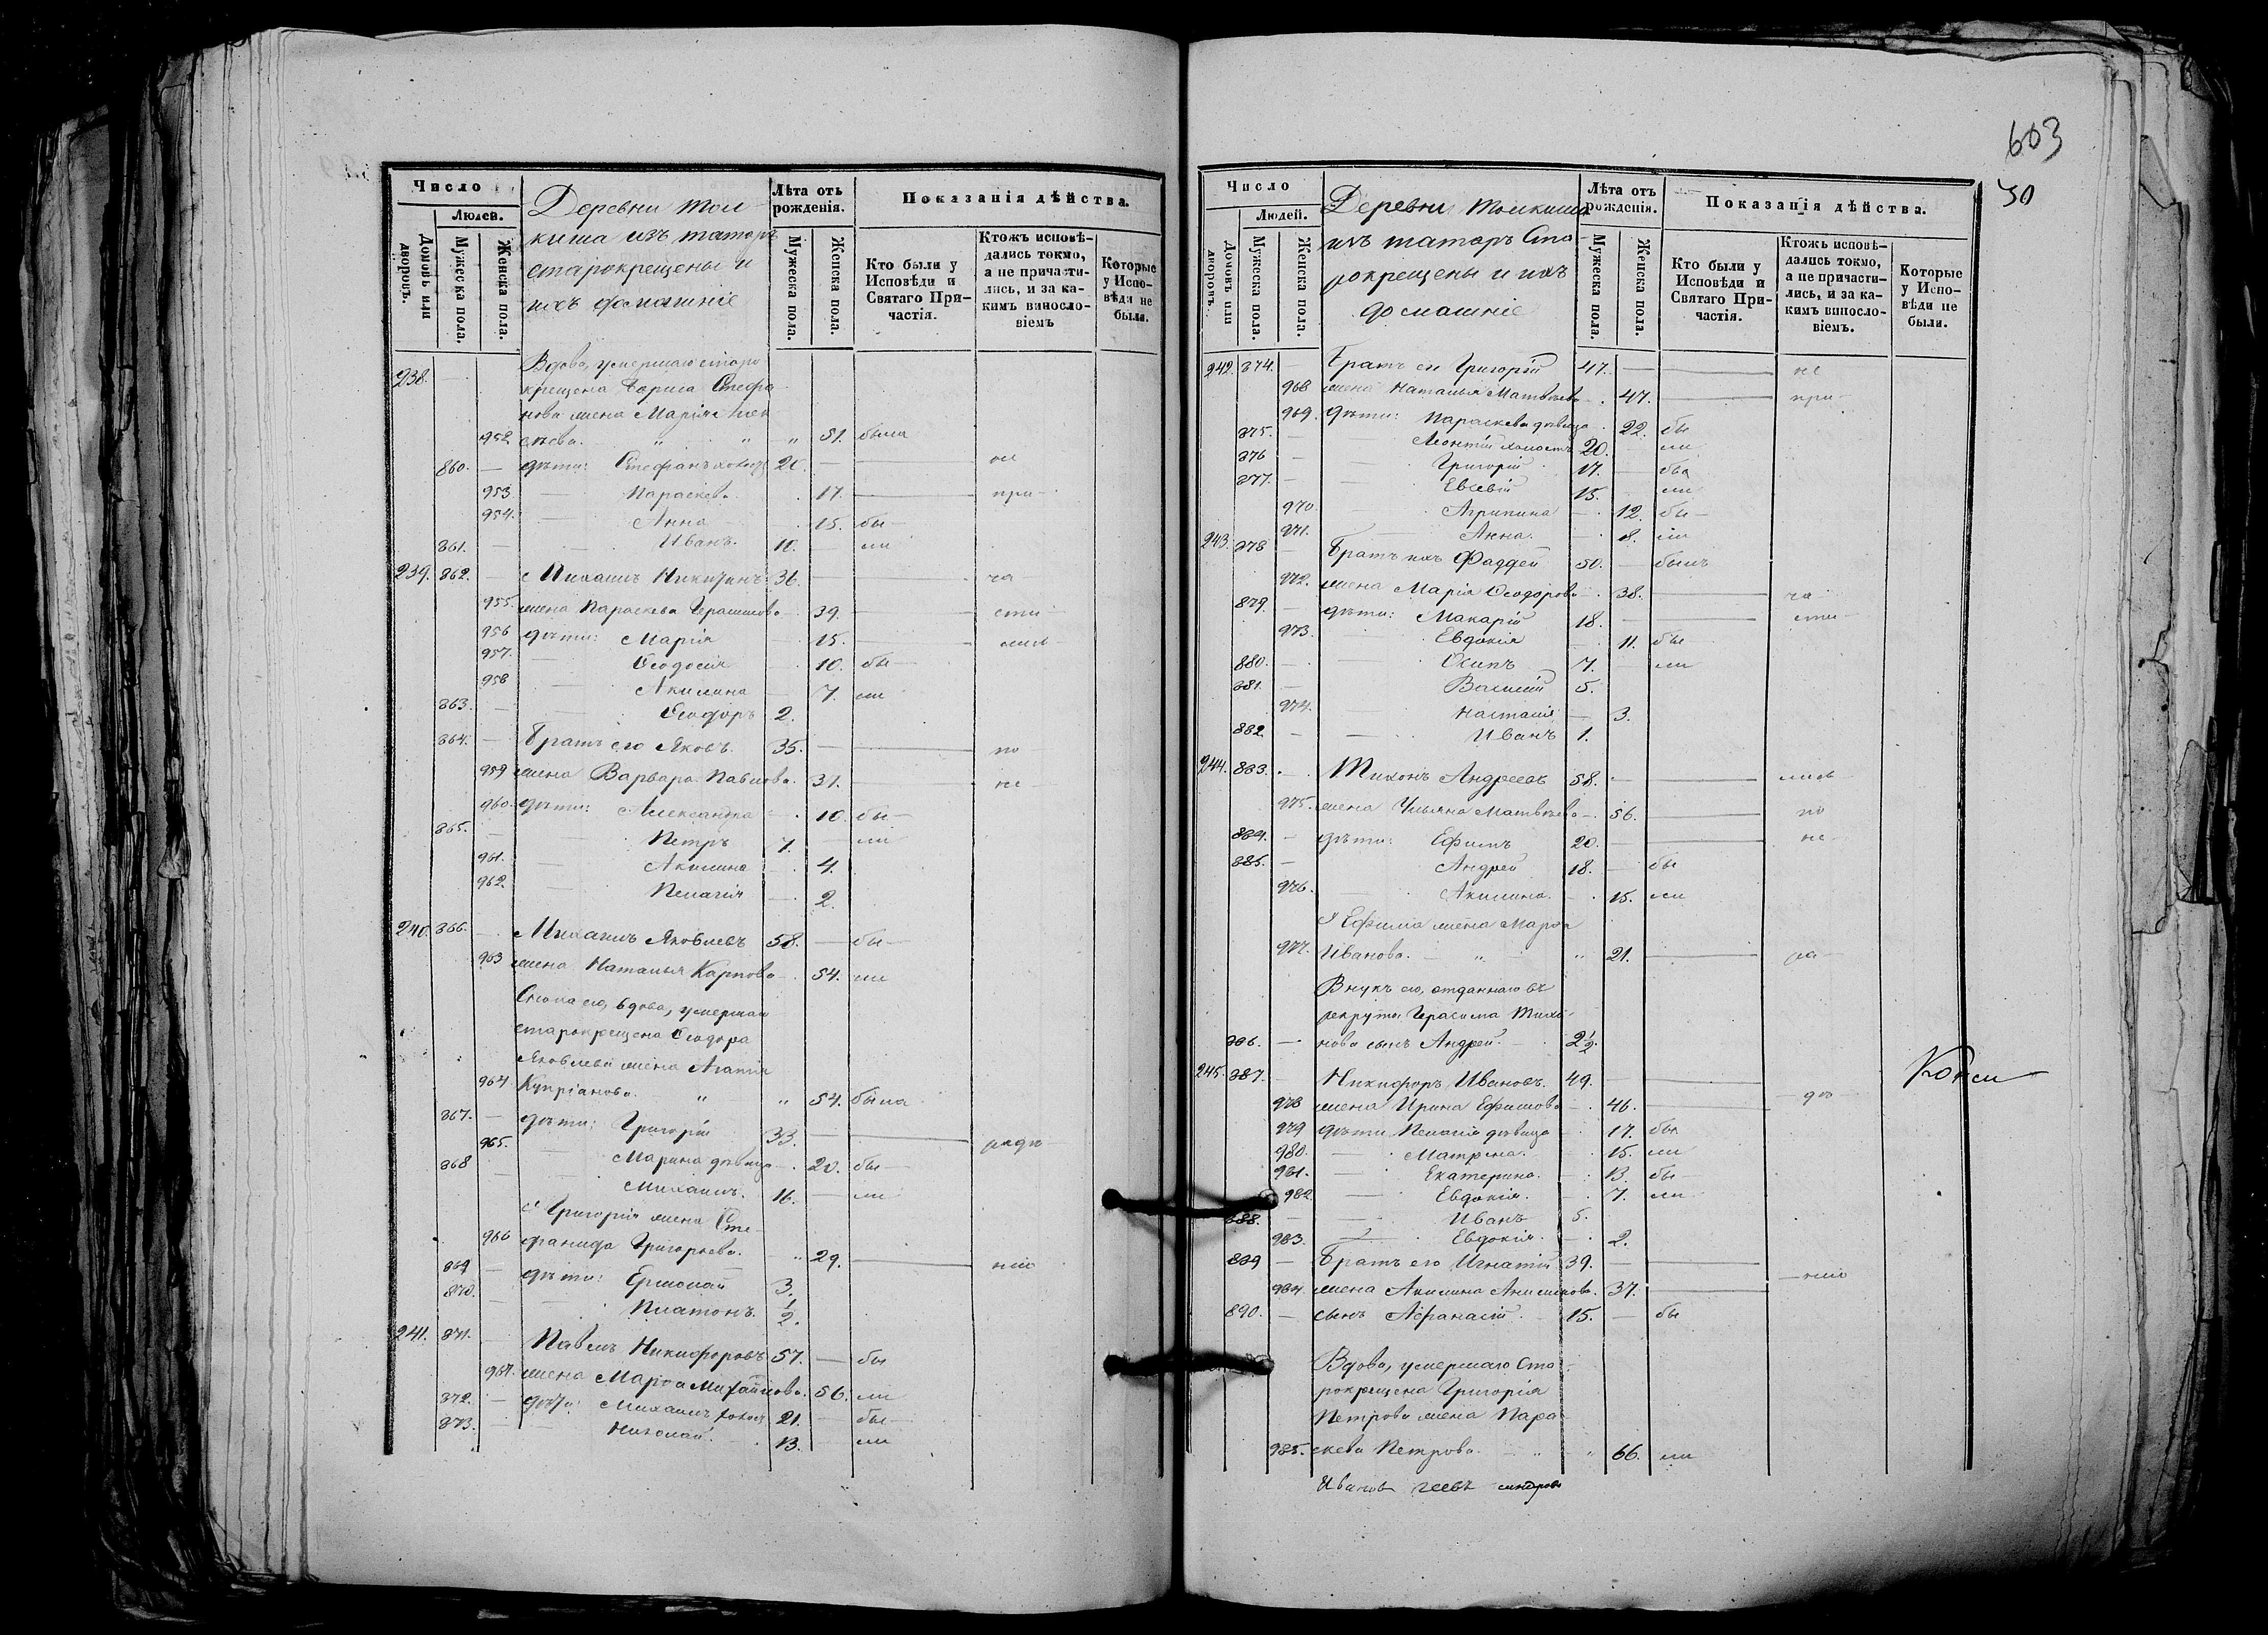 603
50
Число
Людей.
Домовъ или дворовъ.
Мужеска пола.
Женска пола.
Деревни Тол
киша изъ татаръ
старокрещены и
ихъ домашніе
Лѣта отъ рожденія.
Мужеска пола.
Женска пола.
Показанія дѣйства.
Кто были у Исповѣди и Святаго Причастія.
Ктожъ исповѣдались токмо, а не причастились, и за какимъ винословіемъ
Которые у Исповѣди не были.
238. Вдова, умершаго старо
крещена Бориса Стефа
нова жена Марія Алек
952 сѣева. " " " 51. была
860. — дѣти: Стефанъ холост 20. — не
953. — Параскева. 17. — при
954. — Анна 15. бы
861. — Иванъ. 10. — ли
239. 862. — Михаилъ Никитинъ 36. — ча
955. жена Параскева Герасимова 39. — сти
956 дѣти: Марія 15. — лись
957. — Ѳеодосія 10. бы
958 — Акилина 7. ли
863. — Ѳеодоръ 2.
864. — Братъ его Яковъ. 35. — по
959 жена Варвара Павлова. 31. — не
960. дѣти: Александра 10. бы
865. — Петръ 7. — ли
961. — Акилина 4.
962. — Пелагія 2.
240. 866. — Михаилъ Яковлевъ 58. — бы
963 жена Наталья Карпова 54. ли
Сноха его, вдова, умершаго
старокрещена Ѳеодора
Яковлева жена Агапія
964. Купріанова. " " 54. была
867. — дѣти: Григорій 33. — радѣ
965. — Марина дѣвица 20. бы
868 — Михаилъ. 16. — ли
У Григорія жена Сте
966 фанида Григорьева. " 29. — нію
869 — дѣти: Ермолай 3.
870. — Платонъ. 1/2.
241. 871. — Павелъ Никифоровъ 57. — бы
967. жена Марѳа Михайлова. 56. ли
872. — дѣти: Михаилъ холост 21. — бы
873. — Николай. 13. — ли
Число
Людей.
Домовъ или дворовъ.
Мужеска пола.
Женска пола.
Деревни Толкиша
изъ татаръ Ста
рокрещены и ихъ
домашніе
Лѣта отъ рожденія.
Мужеска пола.
Женска пола.
Показанія дѣйства.
Кто были у Исповѣди и Святаго Причастія.
Ктожъ исповѣдались токмо, а не причастились, и за какимъ винословіемъ.
Которые у Исповѣди не были.
242. 874. — Братъ ея Григорій 47. — не
968 жена Наталья Матвѣева 47. — при
969. дѣти: Параскева дѣвица 22. бы
875. — Леонтій холостъ 20. — ли
876 — Григорій 17. — бы
877. — Евсевій 15. — ли
970. — Агрипина 12. бы
971. — Анна. 8. ли
243. 878 — Братъ ихъ Фаддей 50. — былъ
972. жена Марія Ѳеодорова 38. — ча
879. — дѣти: Макарій 18. — сти
973. — Евдокія 11. бы
880. — Осипъ 7. — ли
881. — Василій 5.
974. — Настасія 3.
882. — Иванъ 1.
244. 883. — Тихонъ Андреевъ 58. — лись
975. жена Ульяна Матвѣева 56. — по
884. — дѣти: Ефимъ 20. — не
885. — Андрей 18. — бы
976. — Акилина. 15. ли
У Ефима жена Марѳа
977. Иванова. " " 21. — ра
Внукъ его, отданнаго въ
рекруты Герасима Тихо-
886. — нова сынъ Андрей. 2 1/2.
245. 887. — Никифоръ Ивановъ. 49. —
978 жена Ирина Ефимова 46. — дѣ
979 дѣти Пелагія дѣвица 17. бы
980. — Матрена. 15. ли
981. — Екатерина. 13. бы
982. — Евдокія. 7. ли
888. — Иванъ 5.
983. — Евдокія. 2.
889 — Братъ его Игнатій 39. — нію
984. жена Акилина Анисимова. 37. —
890. — сынъ Аѳанасій. 15. — бы
Вдова, умершаго Ста
рокрещена Григорія
Петрова жена Пара
985. скева Петрова. " " 66. ли